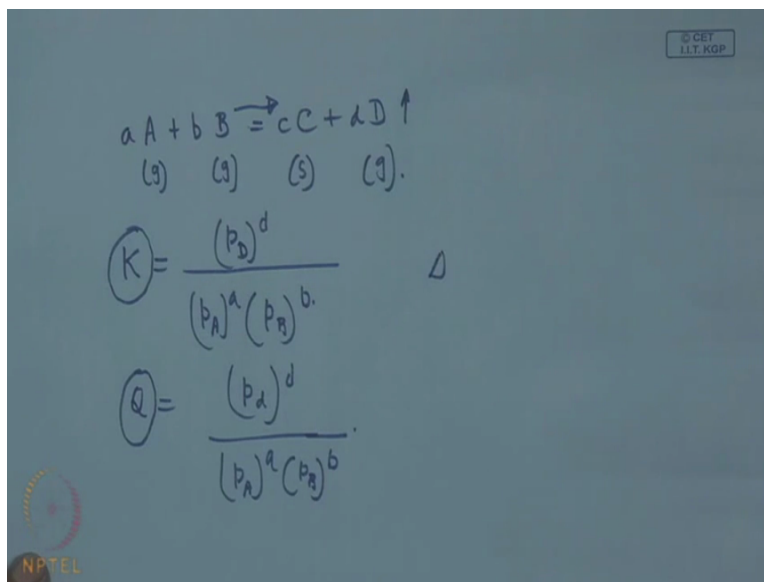 © CET
I.I.T. KGP
a A + b B = c C + d D ↑
(g) (g) (s) (g).
K = (p_D)^d / (p_A)^a (p_B)^b.
Δ
Q = (p_d)^d / (p_A)^a (p_B)^b.
NPTEL